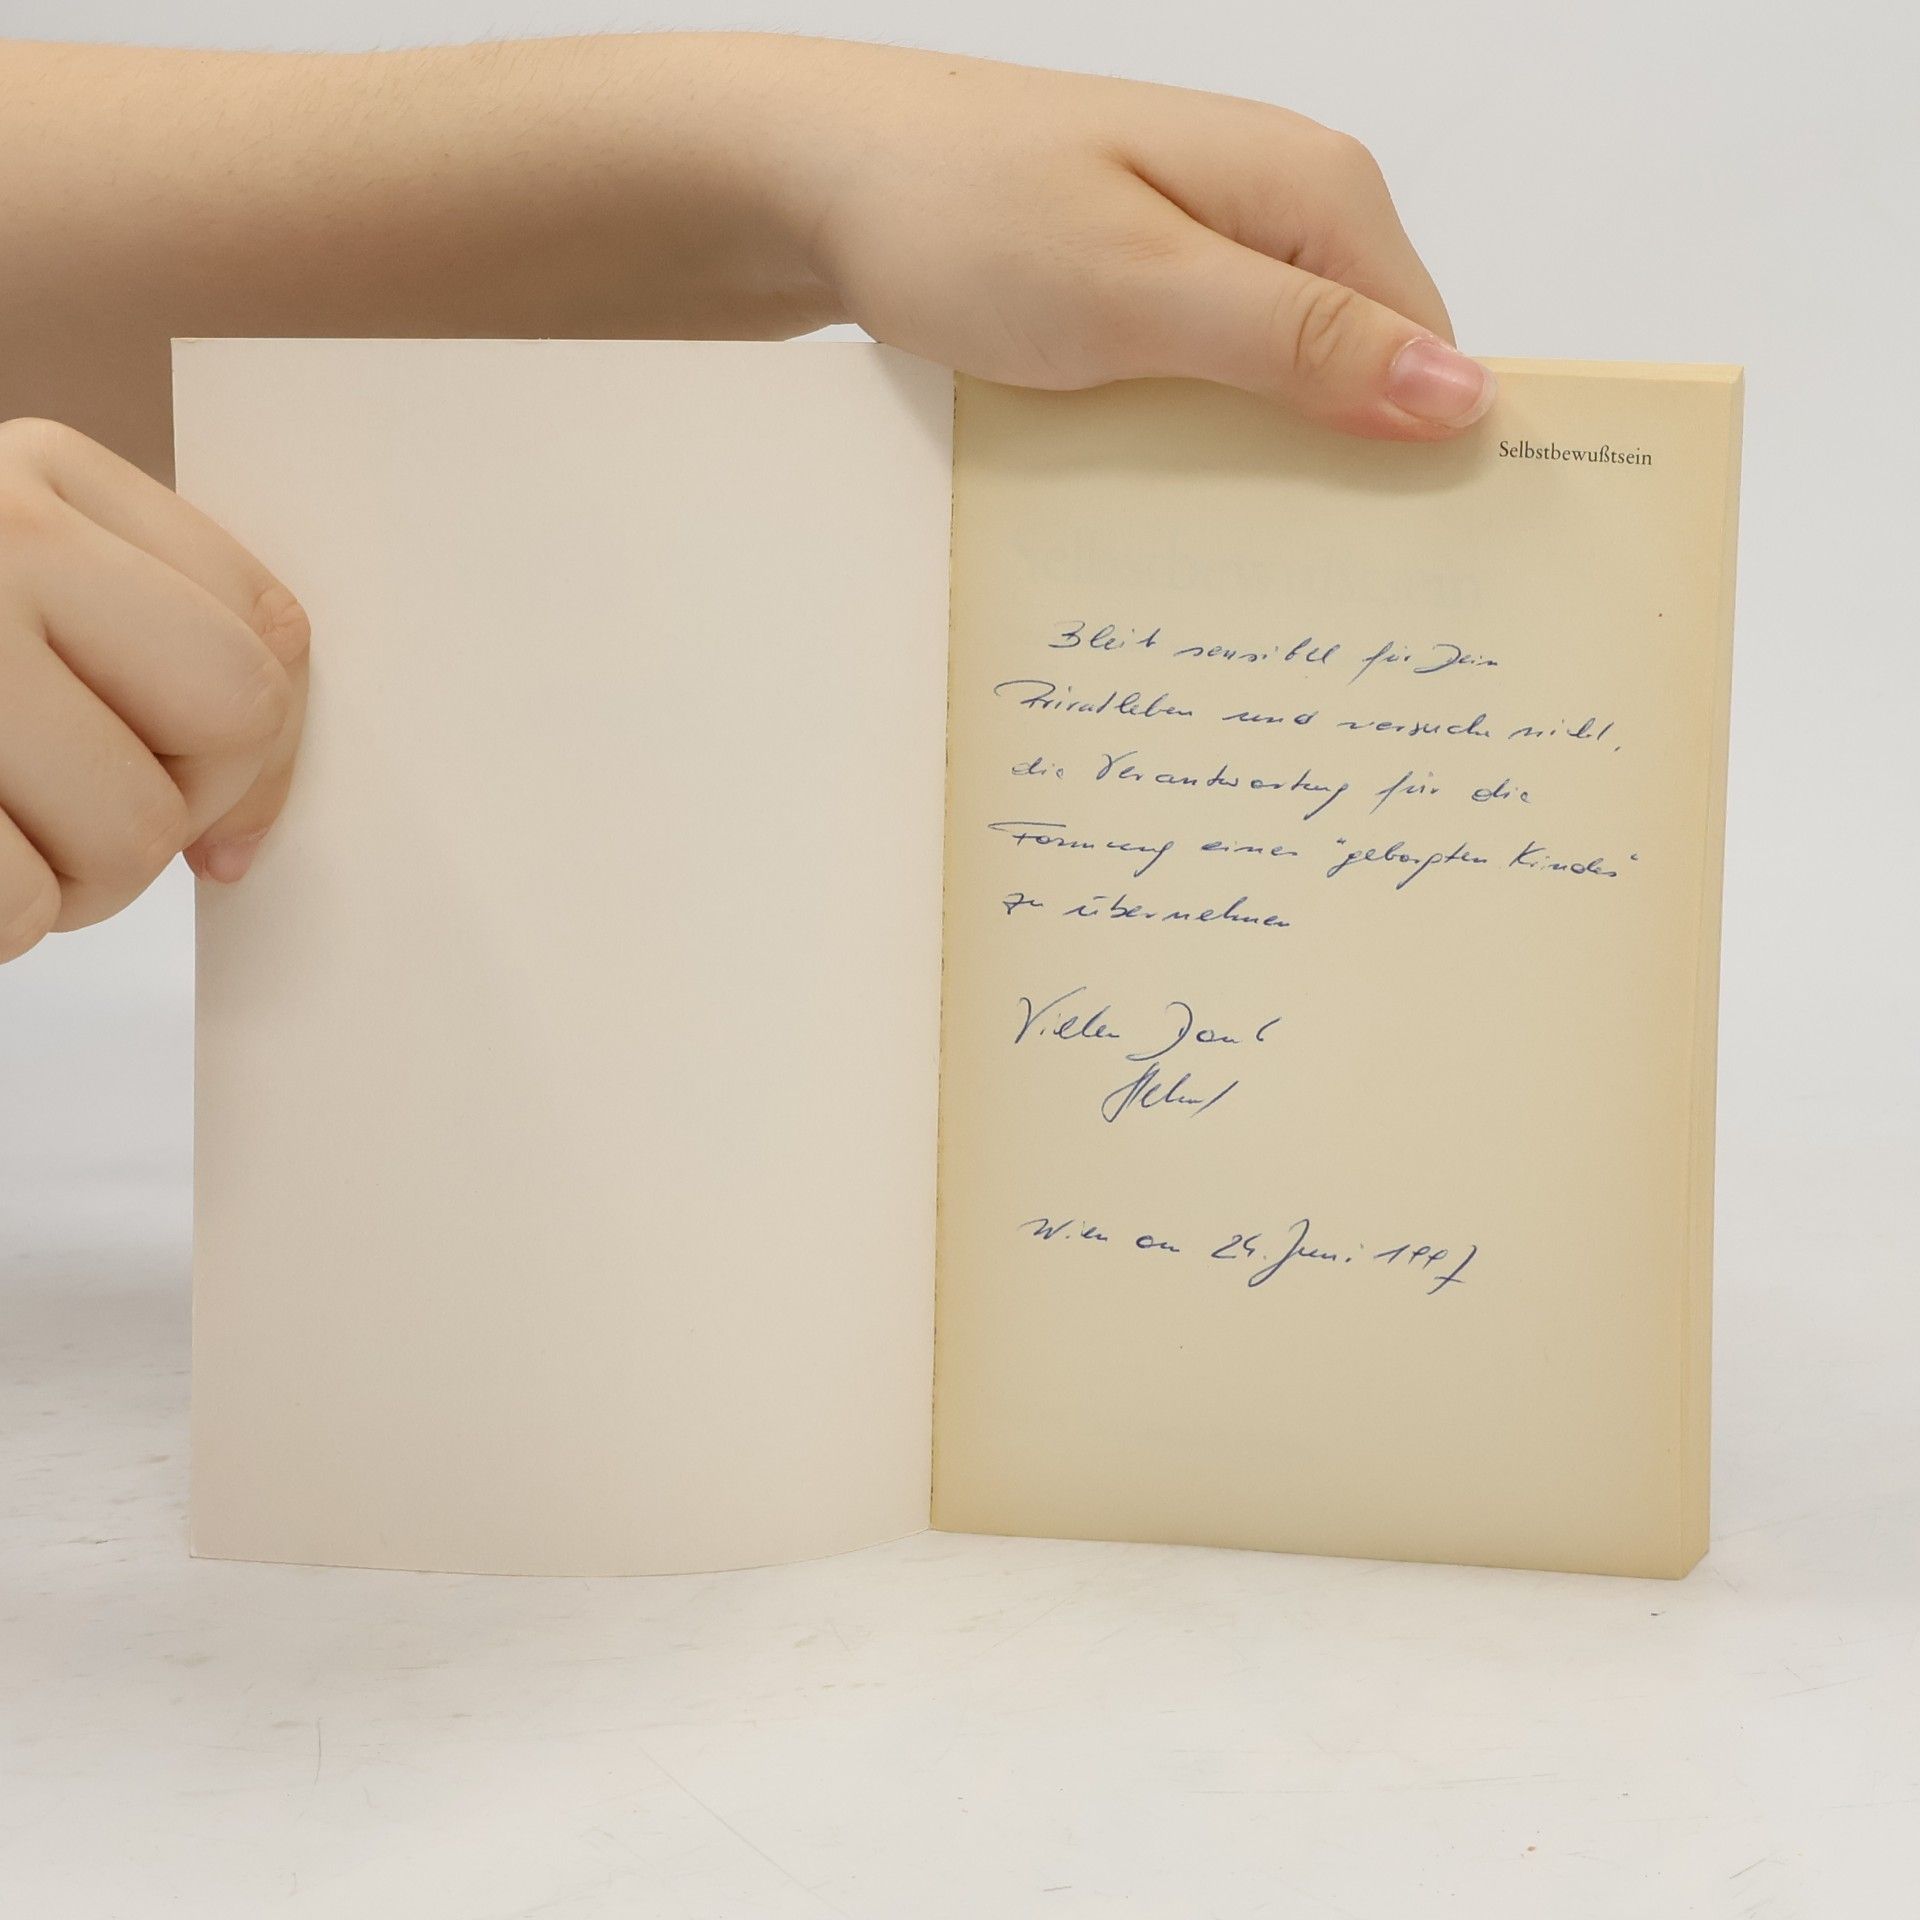 Selbstbewußtsein
Bleib sensibel für Dein
Privatleben und versuche nicht,
die Verantwortung für die
Formung eines "geborgten Kindes"
zu übernehmen
Vielen Dank
Wien am 24. Juni 1997